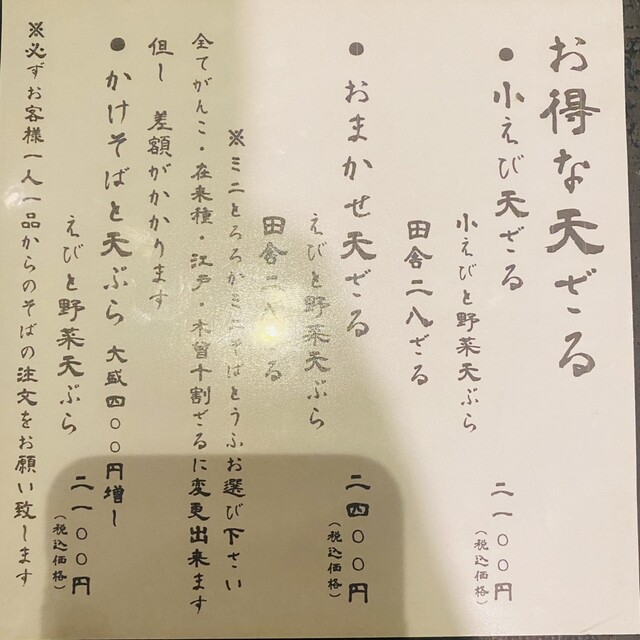 お得な天ざる
● 小えび天ざる 二一〇〇円
(税込価格)
小えびと野菜天ぷら
田舎二八ざる
● おまかせ天ざる 二四〇〇円
(税込価格)
えびと野菜天ぷら
田舎二八ざる
※ミニとろろかミニそばとうふお選び下さい
全てがんこ・在来種・江戸・木曽十割ざるに変更出来ます
但し 差額がかかります
● かけそばと天ぷら 大盛四〇〇円増し
えびと野菜天ぷら 二一〇〇円
(税込価格)
※必ずお客様一人一品からのそばの注文をお願い致します